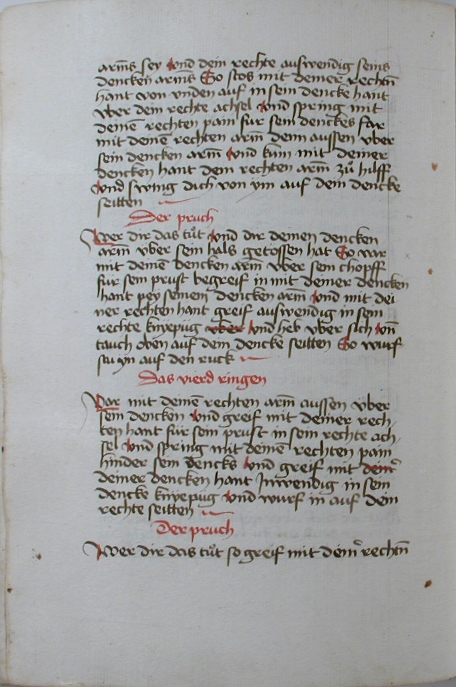 arm̄s sey vnd dein rechte auswendig seins
dencken arms So stos mit deiner rechtn̄
hant von vnden auf in sein dencke hant
vber dein rechte achsel vnd spring mit
deinē rechten pain fur sein denckes far
mit deinē rechten arm̄ denn aussen vber
sein dencken arm̄ vnd kūm mit deiner
dencken hant dem rechten arm̄ zů hilff
vnd swing dich von ym auf dein dencke
seitten
Der pruch
Wer dir das tůt vnd dir deinen dencken
arm̄ vber sein hals gestossen hat So var
mit deinē dencken arm vber sein chopff
fur sein prust begreif in mit deiner dencken
hant pey seinem dencken arm̄ vnd mit dei
ner rechten hant greif auswendig in sein
rechte knyepüg vber vnd heb vber sich vn̄
tauch oben auf dein dencke seitten So wurf
su yn auf den ruck
Das vierd ringen
Var mit deinē rechten arm̄ aussen vber
sein dencken vnd greif mit deiner rech
ten hant fur sein prust in sein rechte ach
sel vnd spring mit deinē rechten pain
hinder sein dencks vnd greif mit
deiner dencken hant Inwendig in sein
dencke knyepüg vnd wurf in auf dein
rechte seitten
Der pruch
Wer dir das tůt so greif mit dein̄ rechtn̄